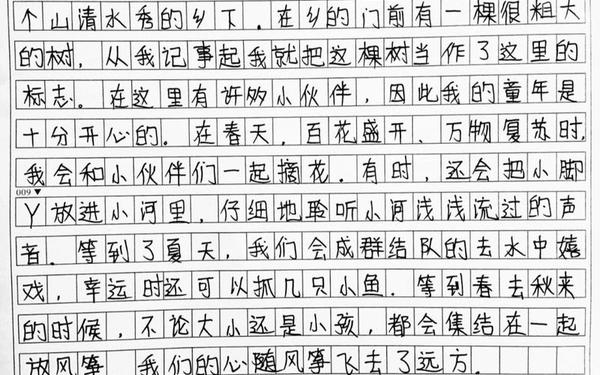 个山清水秀的乡下．在乡的门前有一棵很粗大
的树，从我记事起我就把这棵树当作了这里的
标志。在这里有许多小伙伴，因此我的童年是
十分开心的．在春天，百花盛开、万物复苏时，
我会和小伙伴们一起摘花．有时，还会把小脚
009▼
丫放进小河里，仔细地聆听小河浅浅流过的声
音．等到了夏天，我们会成群结队的去水中嬉
戏，幸运时还可以抓几只小鱼．等到春去秋来
的时候，不论大小还是小孩，都会集结在一起
放风筝 我们的心随风筝飞去了远方．